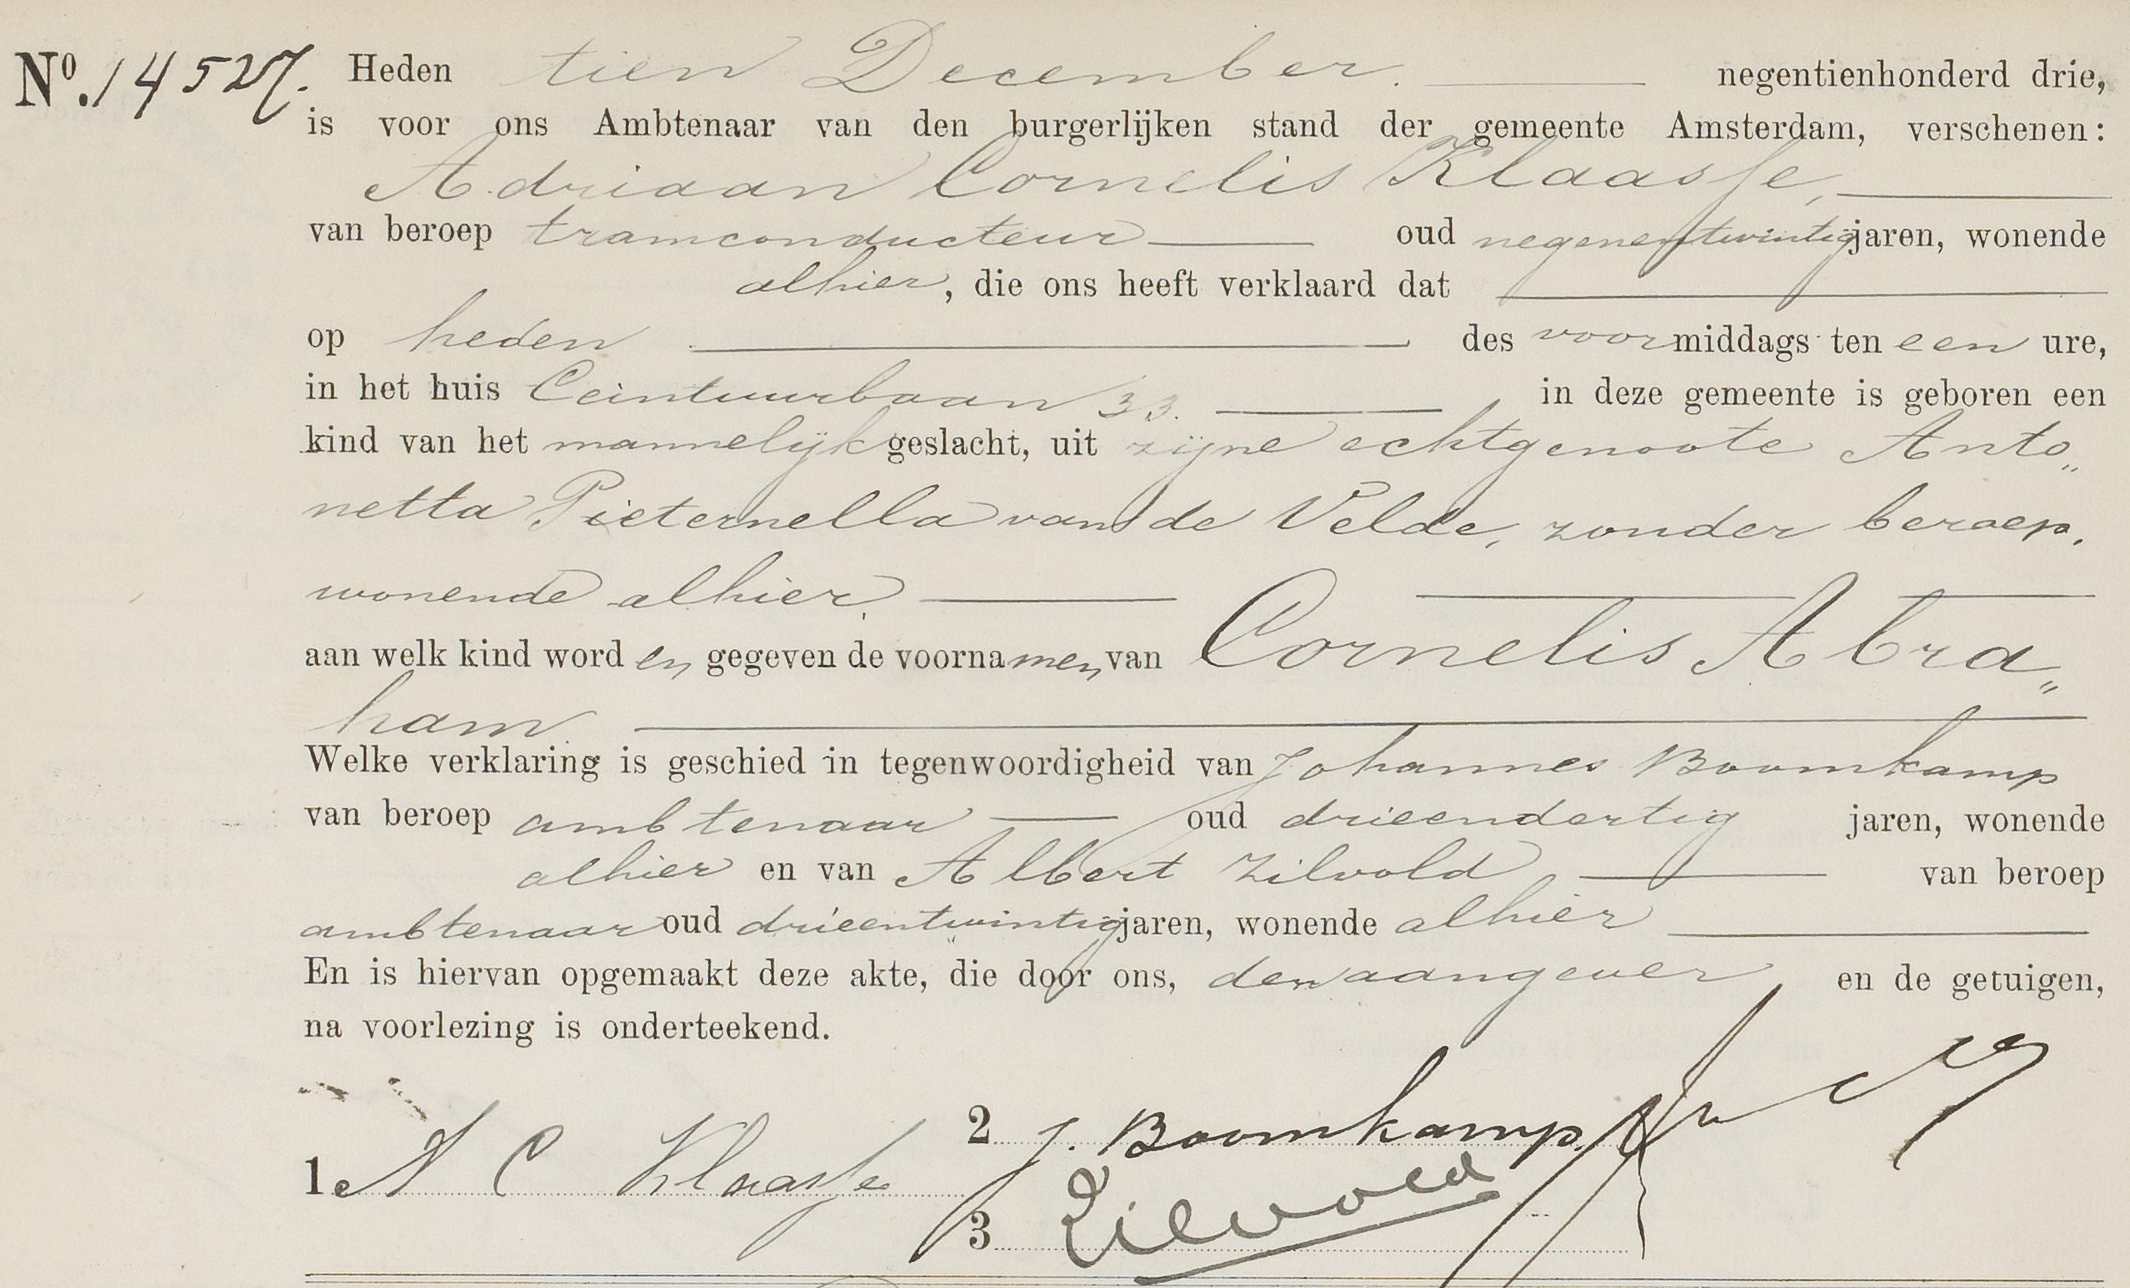 No. 14527. Heden tien December. negentienhonderd drie,
is voor ons Ambtenaar van den burgerlijken stand der gemeente Amsterdam, verschenen:
Adriaan Cornelis Klaasse,
van beroep tramconducteur oud negenentwintig jaren, wonende
alhier, die ons heeft verklaard dat
op heden des voormiddags ten een ure,
in het huis Ceintuurbaan 33. in deze gemeente is geboren een
kind van het mannelijk geslacht, uit zijne echtgenoote Anto„
netta Pieternella van de Velde, zonder beroep,
wonende alhier,
aan welk kind worden gegeven de voornamen van Cornelis Abra„
ham.
Welke verklaring is geschied in tegenwoordigheid van Johannes Boomkamp
van beroep ambtenaar oud drieendertig jaren, wonende
alhier en van Albert Zilvold van beroep
ambtenaar oud drieëntwintig jaren, wonende alhier
En is hiervan opgemaakt deze akte, die door ons, den aangever en de getuigen,
na voorlezing is onderteekend.
2 J. Boomkamp.
1 A C Klaasse
3 Zilvold